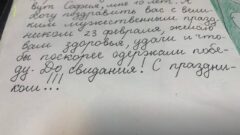 вут София, мне 10 лет. Я
хочу поздравить вас с вели-
ким мужественным празд-
ником 23 февраля, желаю
вам здоровья, удачи и что-
бы поскорее одержали побе-
ду. До свидания! С праздни-
ком...!!!